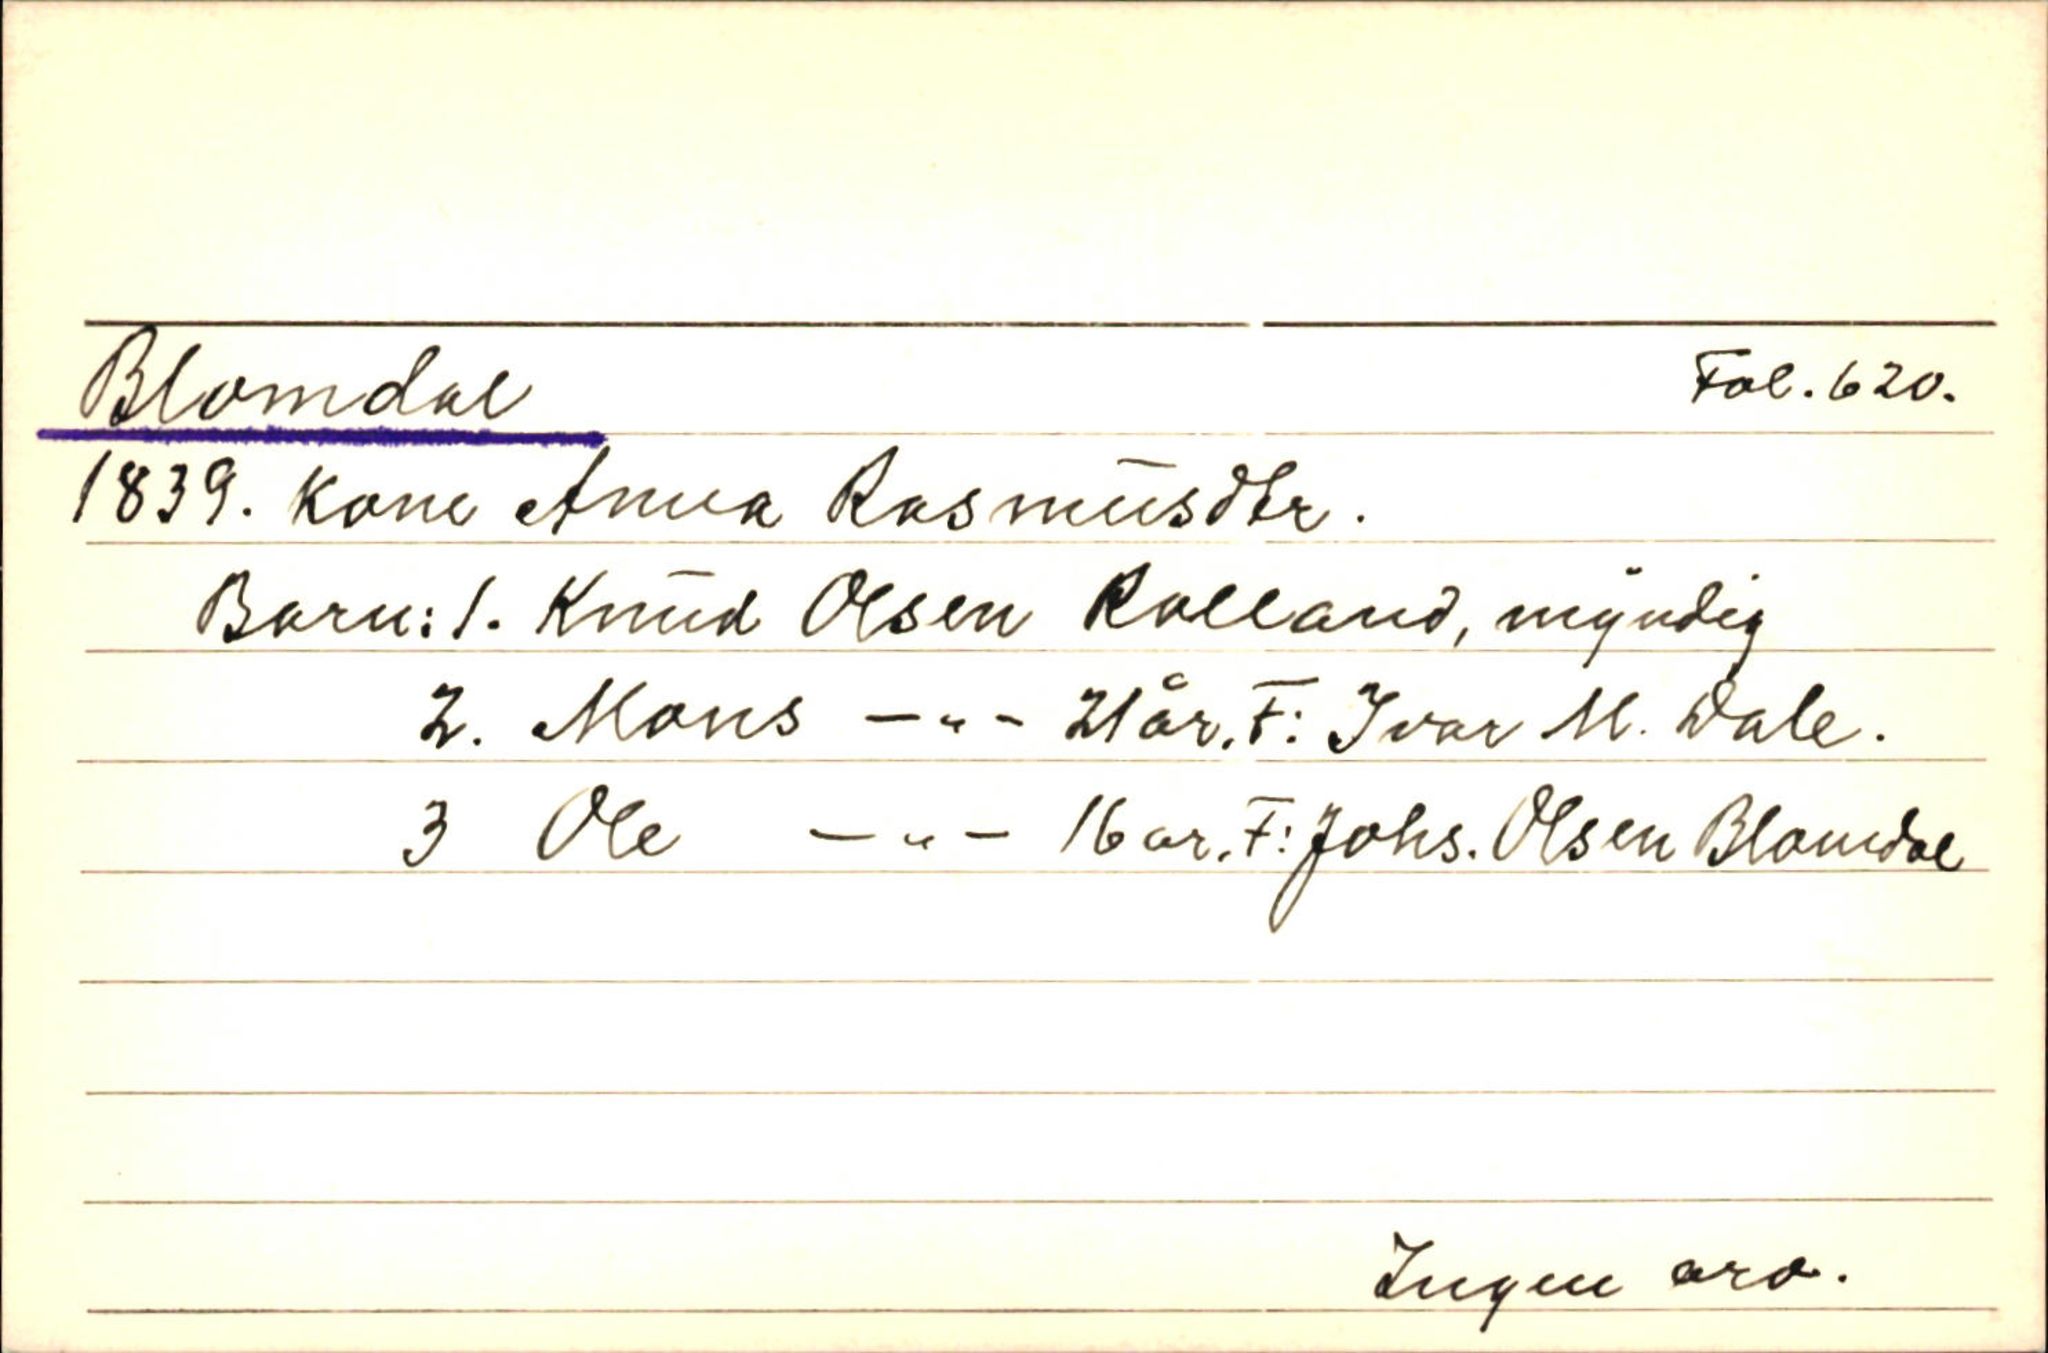 Blomdal Fol. 620.
1839. Kone Anna Rasmusdtr.
Barn: 1. Knud Olsen Rolland, myndig
2. Mons —"— 21 år. F: Ivar M. Dale.
3 Ole —"— 16 år. F: Johs. Olsen Blomdal
Ingen arv.